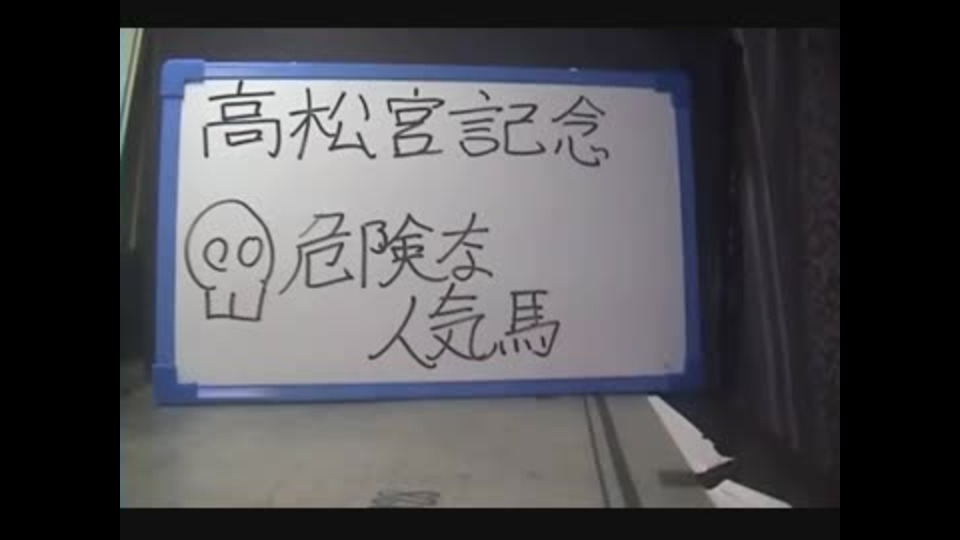 高松宮記念
危険な
人気馬